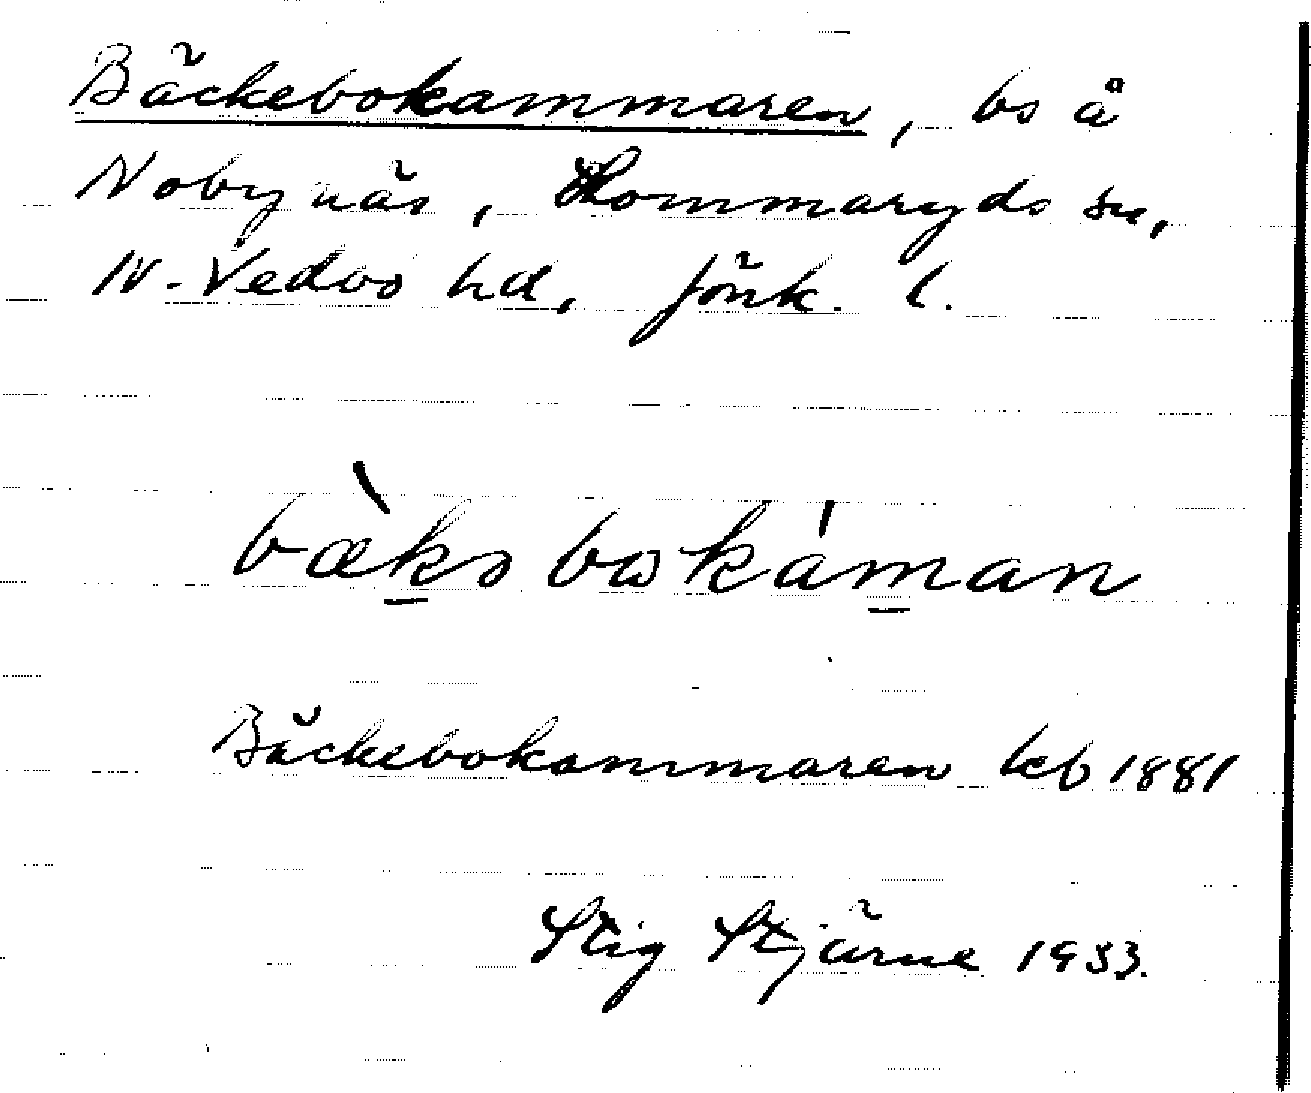 Bäckebokammaren, bs å
Nobynäs, Lommaryds sn,
N. Vedbo hd, Jönk. l.
bæ̀kəbωkáman
Bäckebokammaren kb 1881
Stig Stjärne 1933.